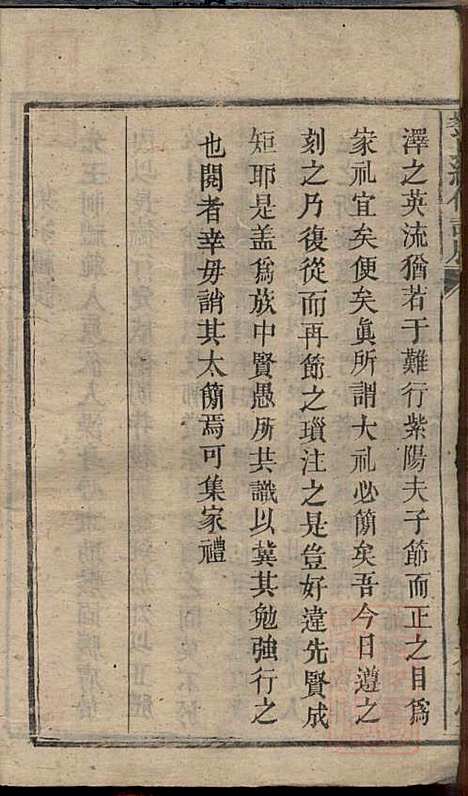 澤之英流猶若于難行紫陽夫子節而正之目爲
家礼宜矣便矣眞所謂大礼必簡矣吾今日遵之
刻之乃復從而再節之瑣注之是豈好違先賢成
矩耶是盖爲族中賢愚所共識以兾其勉強行之
也閱者幸毋誚其太簡焉可集家禮